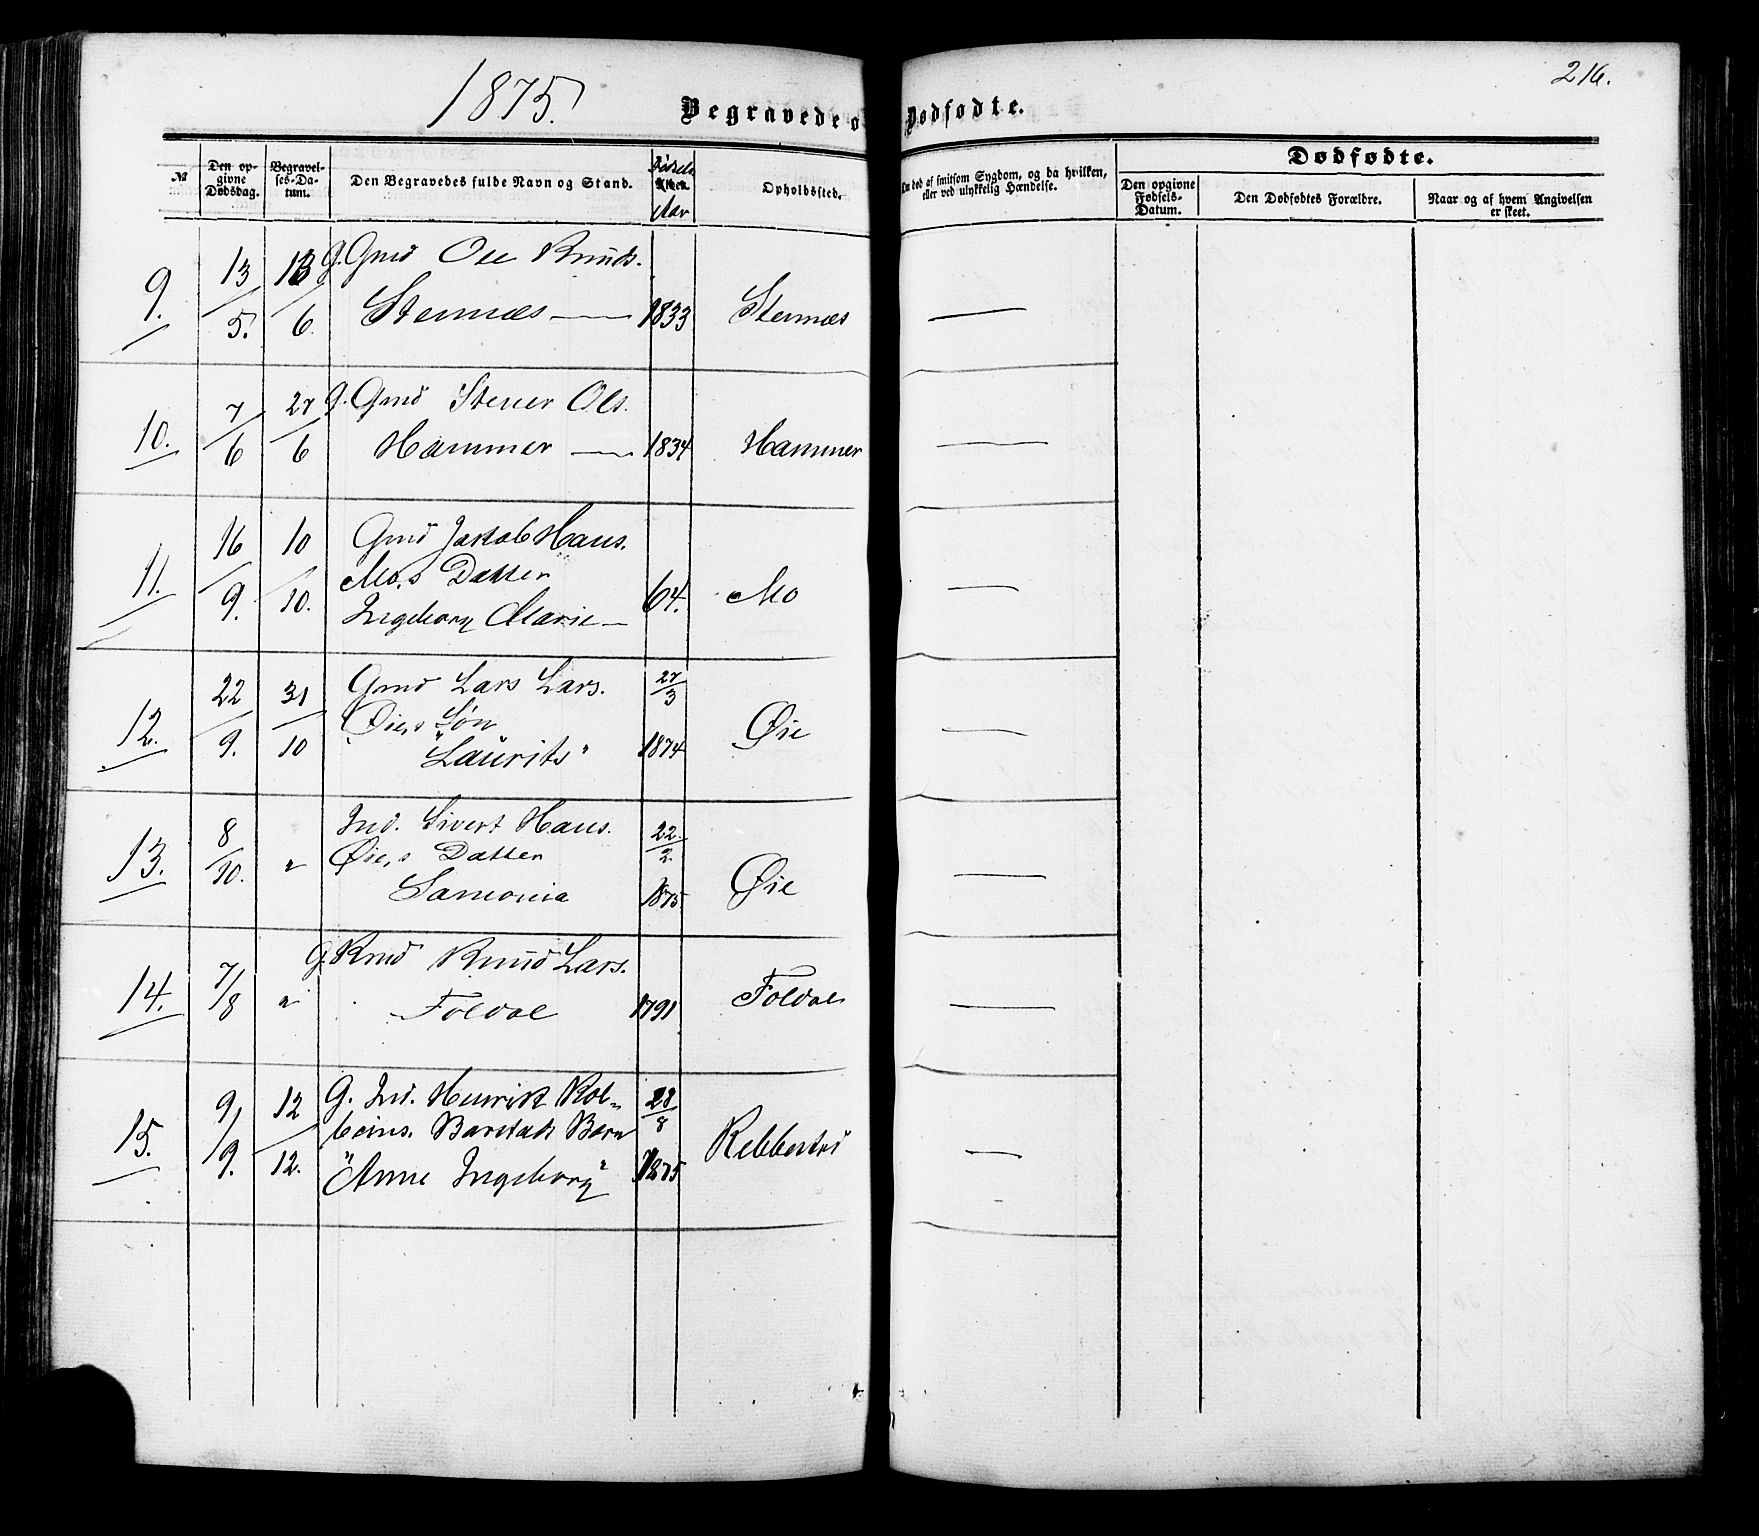 1875.
216.
Begravede o
Dødfødte.
№
Den op-
givne
Dødsdag.
Begravel-
ses-Da-
tum.
Den Begravedes fulde Navn og Stand.
Fødsels
Aar
Opholdssted.
Om død af smitsom Sygdom, og da hvilken,
eller ved ulykkelig Hændelse.
Dødfødte.
Den opgivne
Fødsels-
Datum.
Den Dødfødtes Forældre.
Naar og af hvem Angivelsen
er skeet.
9. 13/5. 13/6. g. Gmd Ole Knuds.
Stennæs — 1833 Stennæs —
10. 7/6 27/6 g. Gmd Stener Ols.
Hammer — 1834 Hammer —
11. 16/9. 10/10. Gmd Jakob Hans.
Mo,s Datter
Ingeborg Marie — 64. Mo —
12. 22/9. 31/10 Gmd Lars Lars. 27/3
Øie,s Søn
"Laurits" 1874 Øie —
13. 8/10. " Ind. Sivert Hans. 22/2.
Øie,s Datter
Samonia 1875. Øie —
14. 7/8 " g. Knud Lars.
Foldal 1791 Foldal —
15. 9/9. 12/12. g. Ind. Henrik Kol-
beins. Barn 28/8
"Anne Ingeborg" 1875 —